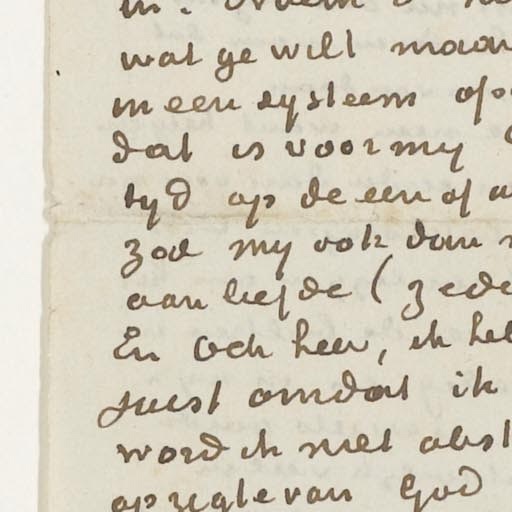 wat ge wilt maar
in een systeem
dat is voor my
tyd op de een of
zod my ook dan
aan liefde (
En Och heer, ik heb
juist omdat ik
word ik met
opzigte van God